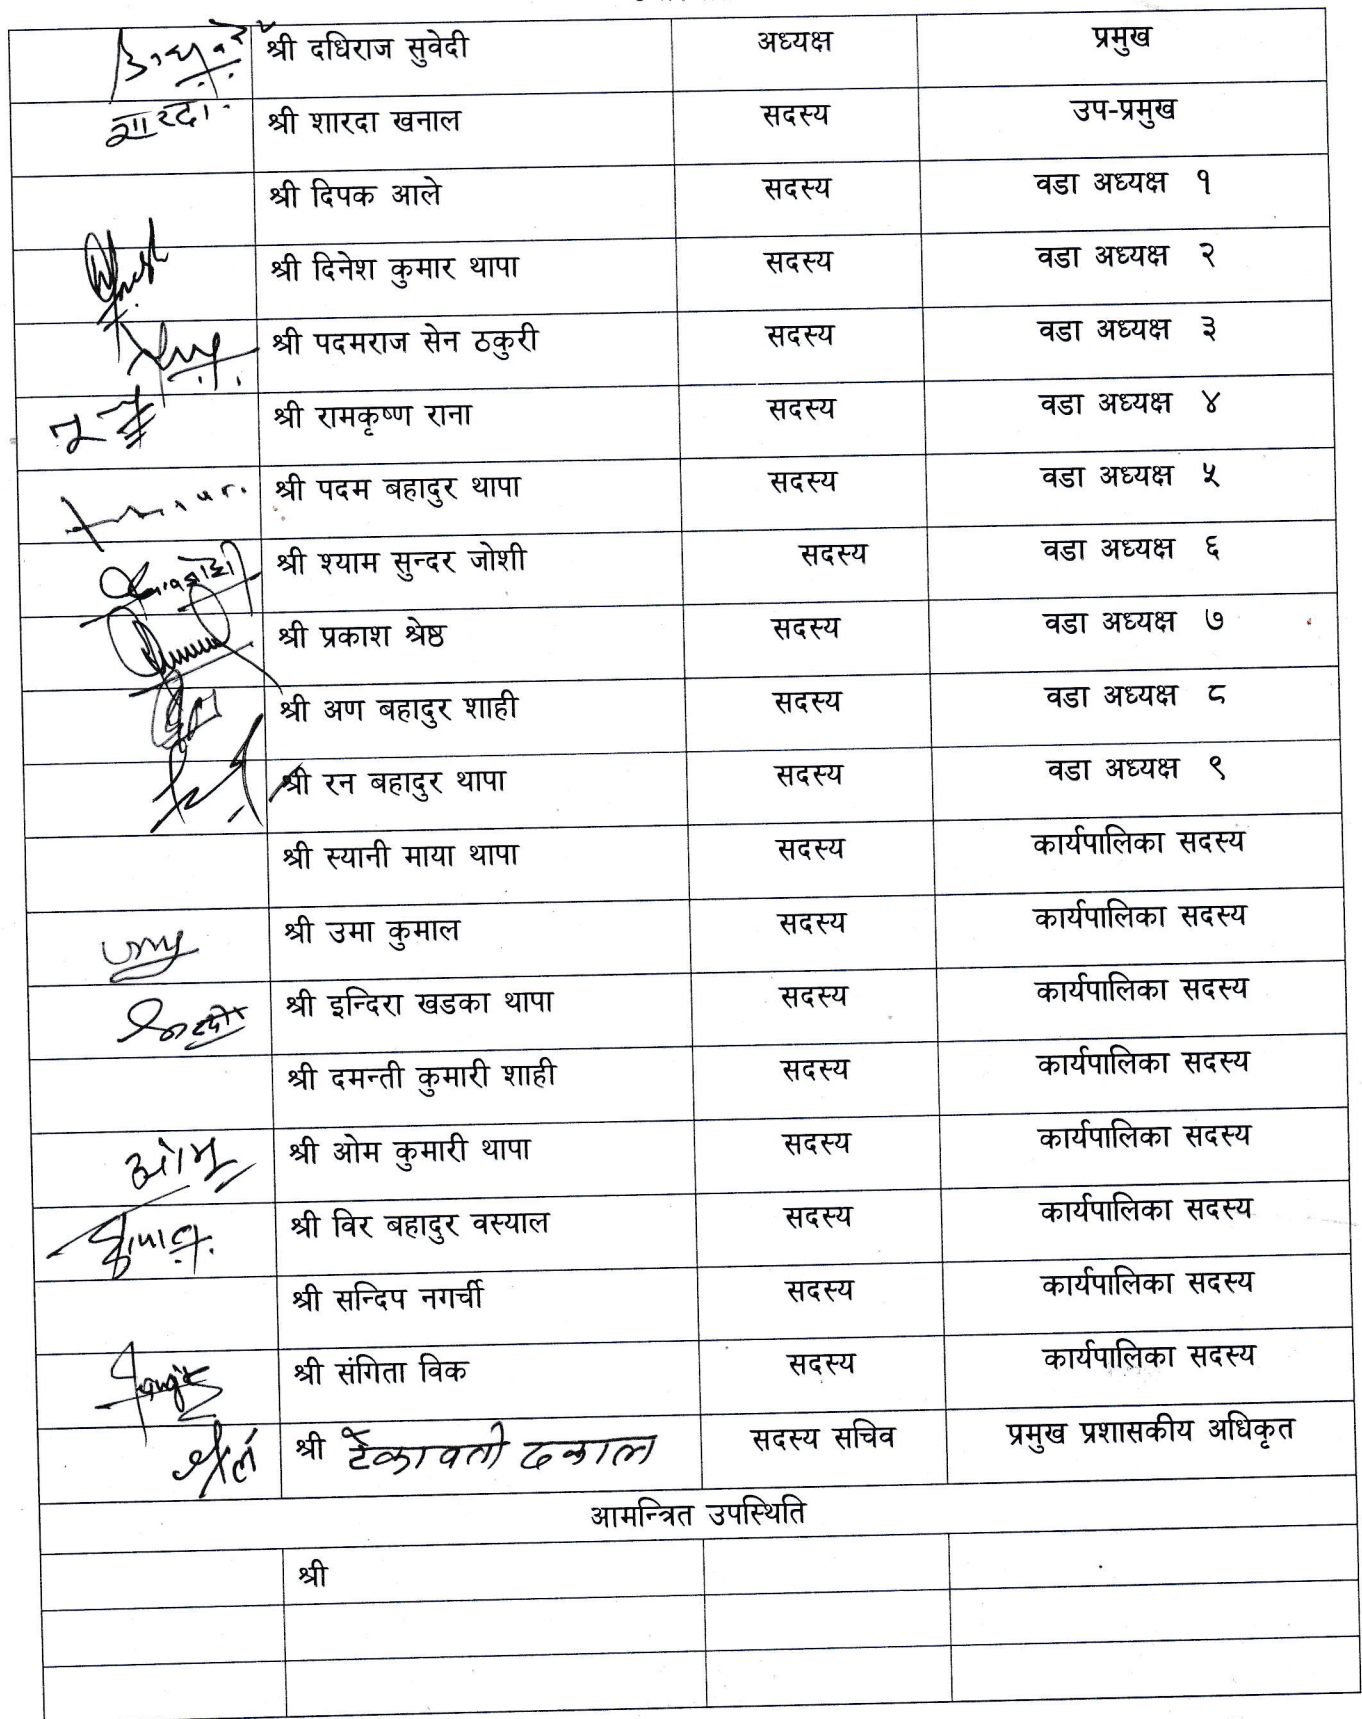 श्री दधिराज सुवेदी अध्यक्ष प्रमुख
शारदा श्री शारदा खनाल सदस्य उप-प्रमुख
श्री दिपक आले सदस्य वडा अध्यक्ष १
श्री दिनेश कुमार थापा सदस्य वडा अध्यक्ष २
श्री पदमराज सेन ठकुरी सदस्य वडा अध्यक्ष ३
श्री रामकृष्ण राना सदस्य वडा अध्यक्ष ४
श्री पदम बहादुर थापा सदस्य वडा अध्यक्ष ५
श्री श्याम सुन्दर जोशी सदस्य वडा अध्यक्ष ६
श्री प्रकाश श्रेष्ठ सदस्य वडा अध्यक्ष ७
श्री अण बहादुर शाही सदस्य वडा अध्यक्ष ८
श्री रन बहादुर थापा सदस्य वडा अध्यक्ष ९
श्री स्यानी माया थापा सदस्य कार्यपालिका सदस्य
श्री उमा कुमाल सदस्य कार्यपालिका सदस्य
श्री इन्दिरा खडका थापा सदस्य कार्यपालिका सदस्य
श्री दमन्ती कुमारी शाही सदस्य कार्यपालिका सदस्य
ओम श्री ओम कुमारी थापा सदस्य कार्यपालिका सदस्य
श्री विर बहादुर वस्याल सदस्य कार्यपालिका सदस्य
श्री सन्दिप नगर्ची सदस्य कार्यपालिका सदस्य
श्री संगिता विक सदस्य कार्यपालिका सदस्य
श्री टेकावती ढकाल सदस्य सचिव प्रमुख प्रशासकीय अधिकृत
आमन्त्रित उपस्थिति
श्री